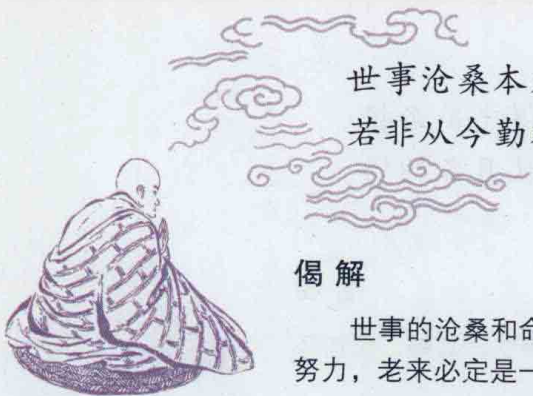 世事沧桑本
若非从今勤
偈解
世事的沧桑和命
努力，老来必定是一